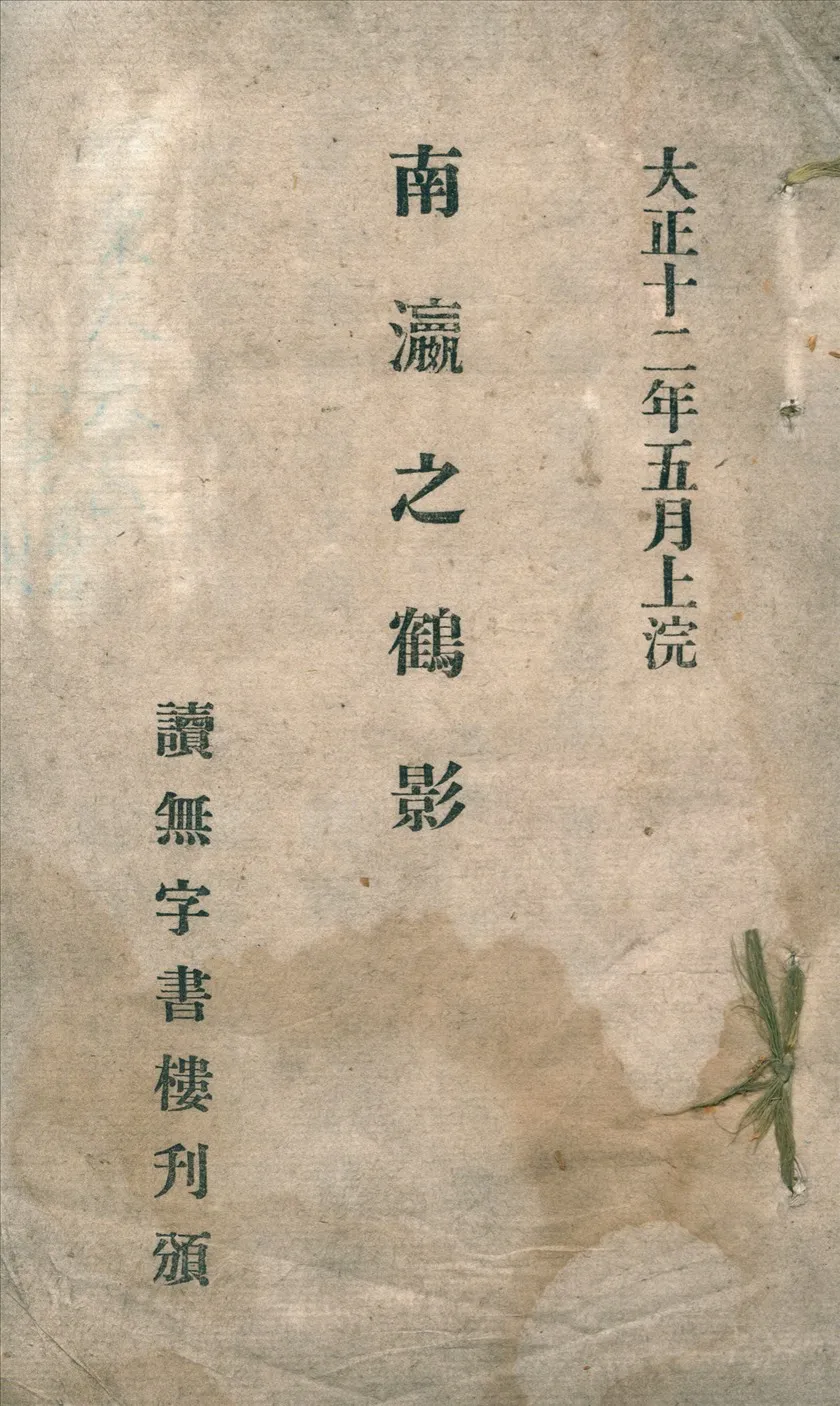 大正十二年五月上浣
南瀛之鶴影
讀無字書樓刋頒